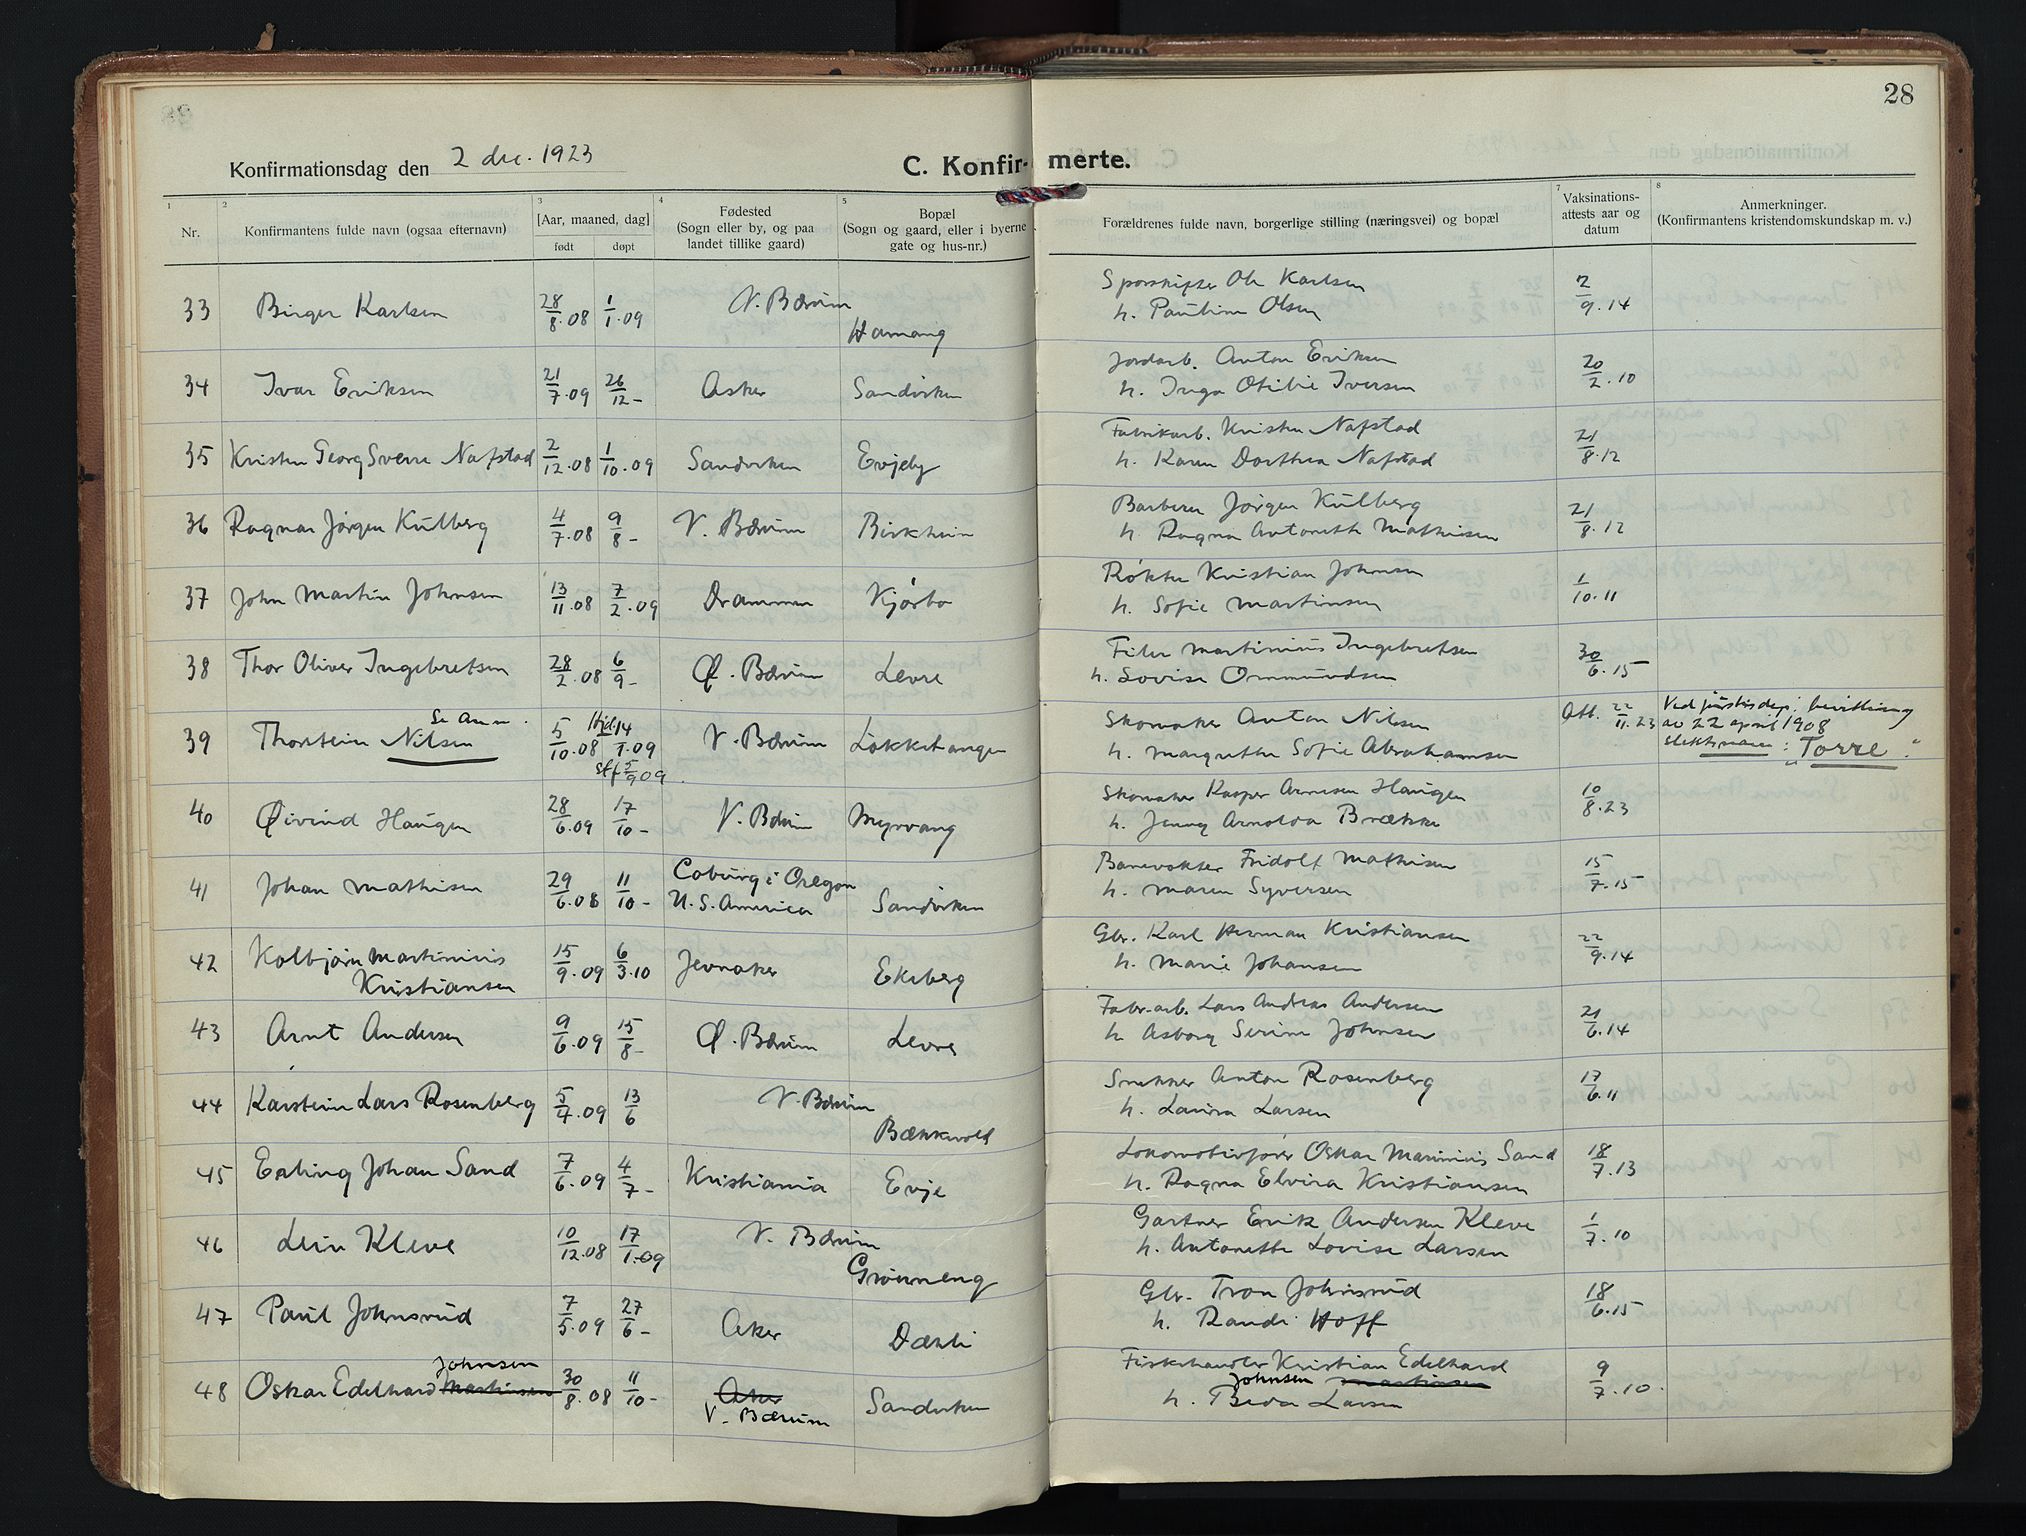 28
Konfirmationsdag den 2 dec. 1923
C. Konfirmerte.
1 2 3 4 5 7 8
Nr.
Konfirmantens fulde navn (ogsaa efternavn)
[Aar, maaned, dag]
født døpt
Fødested
(Sogn eller by, og paa
landet tillike gaard)
Bopæl
(Sogn og gaard, eller i byerne
gate og hus-nr.)
Forældrenes fulde navn, borgerlige stilling (næringsvei) og bopæl
Vaksinations-
attests aar og
datum
Anmerkninger.
(Konfirmantens kristendomskundskap m. v.)
33 Birger Karlsen 28/8.08 1/1.09 V. Bærum Hamang Sporskifter Ole Karlsen 2/9.14
h. Pauline Olsen
34 Ivar Eriksen 21/7.09 26/12- Asker Sandviken Jordarb. Anton Eriksen 20/2.10
h. Inga Otilie Iversen
35 Kristen Georg Sverre Nafstad 2/12.08 1/10.09 Sandviken Evjeby Fabrikarb. Kristen Nafstad 21/8.12
h. Karen Dorthea Nafstad
36 Ragnar Jørgen Kulberg 4/7.08 9/8- V. Bærum Birkheim Barberer Jørgen Kulberg 21/8.12
h. Ragna Antonette Mathisen
37 John Martin Johnsen 13/11.08 7/2.09 Drammen Kjørbo Røkter Kristian Johnsen 1/10.11
h. Sofie Martinsen
38 Thor Oliver Ingebretsen 28/2.08 6/9- Ø. Bærum Levre Filer Martinius Ingebretsen 30/6.15
h. Lovise Ommundsen
39 Thorstein Nilsen Se Anm. 5/10.08 Hjd. 14/1.09 stf 5/9 09. V. Bærum Løkketangen Skomaker Anton Nilsen Att. 22/11.23 Ved justisdep: bevilling
h. Margrethe Sofie Abrahamsen av 22 april 1908
slektsnavn: "Torre".
40 Øivind Haugen 28/6.09 17/10- V. Bærum Myrvang Skomaker Kasper Arnesen Haugen 10/8.23
h. Jenny Arnolda Brække
41 Johan Mathisen 29/6.08 11/10- Coburg i Oregon Sandviken Banevokter Fridolf Mathisen 15/7.15
U. S. America h. Maren Syversen
42 Kolbjørn Martinius 15/9.09 6/3.10 Jevnaker Ekeberg Gbr. Karl Herman Kristiansen 22/9.14
Kristiansen h. Marie Johansen
43 Arnt Andersen 9/6.09 15/8- Ø. Bærum Levre Fabr.arb. Lars Andreas Andersen 21/6.14
h. Asborg Serine Johnsen
44 Karstein Lars Rosenberg 5/4.09 13/6 V. Bærum Bækkevold Snekker Anton Rosenberg 17/6.11
h. Laura Larsen
45 Erling Johan Sand 7/6.09 4/7- Kristiania Evje Lokomotivfører Oskar Marinius Sand 18/7.13
h. Ragna Elvira Kristiansen
46 Leiv Kleve 10/12.08 17/1.09 V. Bærum Grøneneng Gartner Erik Andersen Kleve 1/7.10
h. Antonette Lovise Larsen
47 Paul Johnsrud 7/5.09 27/6- Aker Dæhli Gbr. Tron Johnsrud 18/6.15
h. Randi Hoff
48 Oskar Edelhard Martinsen Johnsen 30/8.08 11/10- Aker Sandviken Fiskehandler Kristian Edelhard 9/7.10.
V. Bærum Johnsen Martinsen
h. Beda Larsen